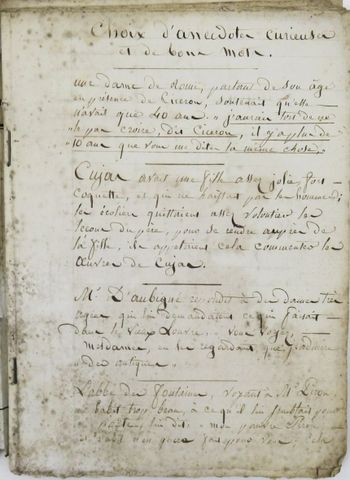 Choix d'anecdotes curieuses
et de bons mots.
une dame de Rome, parlant de son âge
en présence de Ciceron, soutenait qu'elle
n'avait que 40 ans. "j'aurais tort de ne
"le pas croire, dit Ciceron, il y a plus de
"10 ans que vous me dites la même chose.
Cujas avait une fille assez jolie fort
coquette, et qui ne haïssait pas les hommes;
les écoliers quittaient assez volontiers les
leçons du père, pour se rendre auprès de
la fille, ils appelaient cela commenter les
Œuvres de Cujas.
Mr D'aubigné répondit à des dames très
agées qui lui demandaient ce qu'il faisait
dans le vieux Louvre, vous voyez
mesdames, en les regardant que j'admire
"des antiques."
L'abbé des fontaines, voyant à Mr Piron,
un habit trop beau, à ce qu'il lui semblait pour
poete, lui dit: "mon pauvre Piron
habit n'est guères fait pour vous